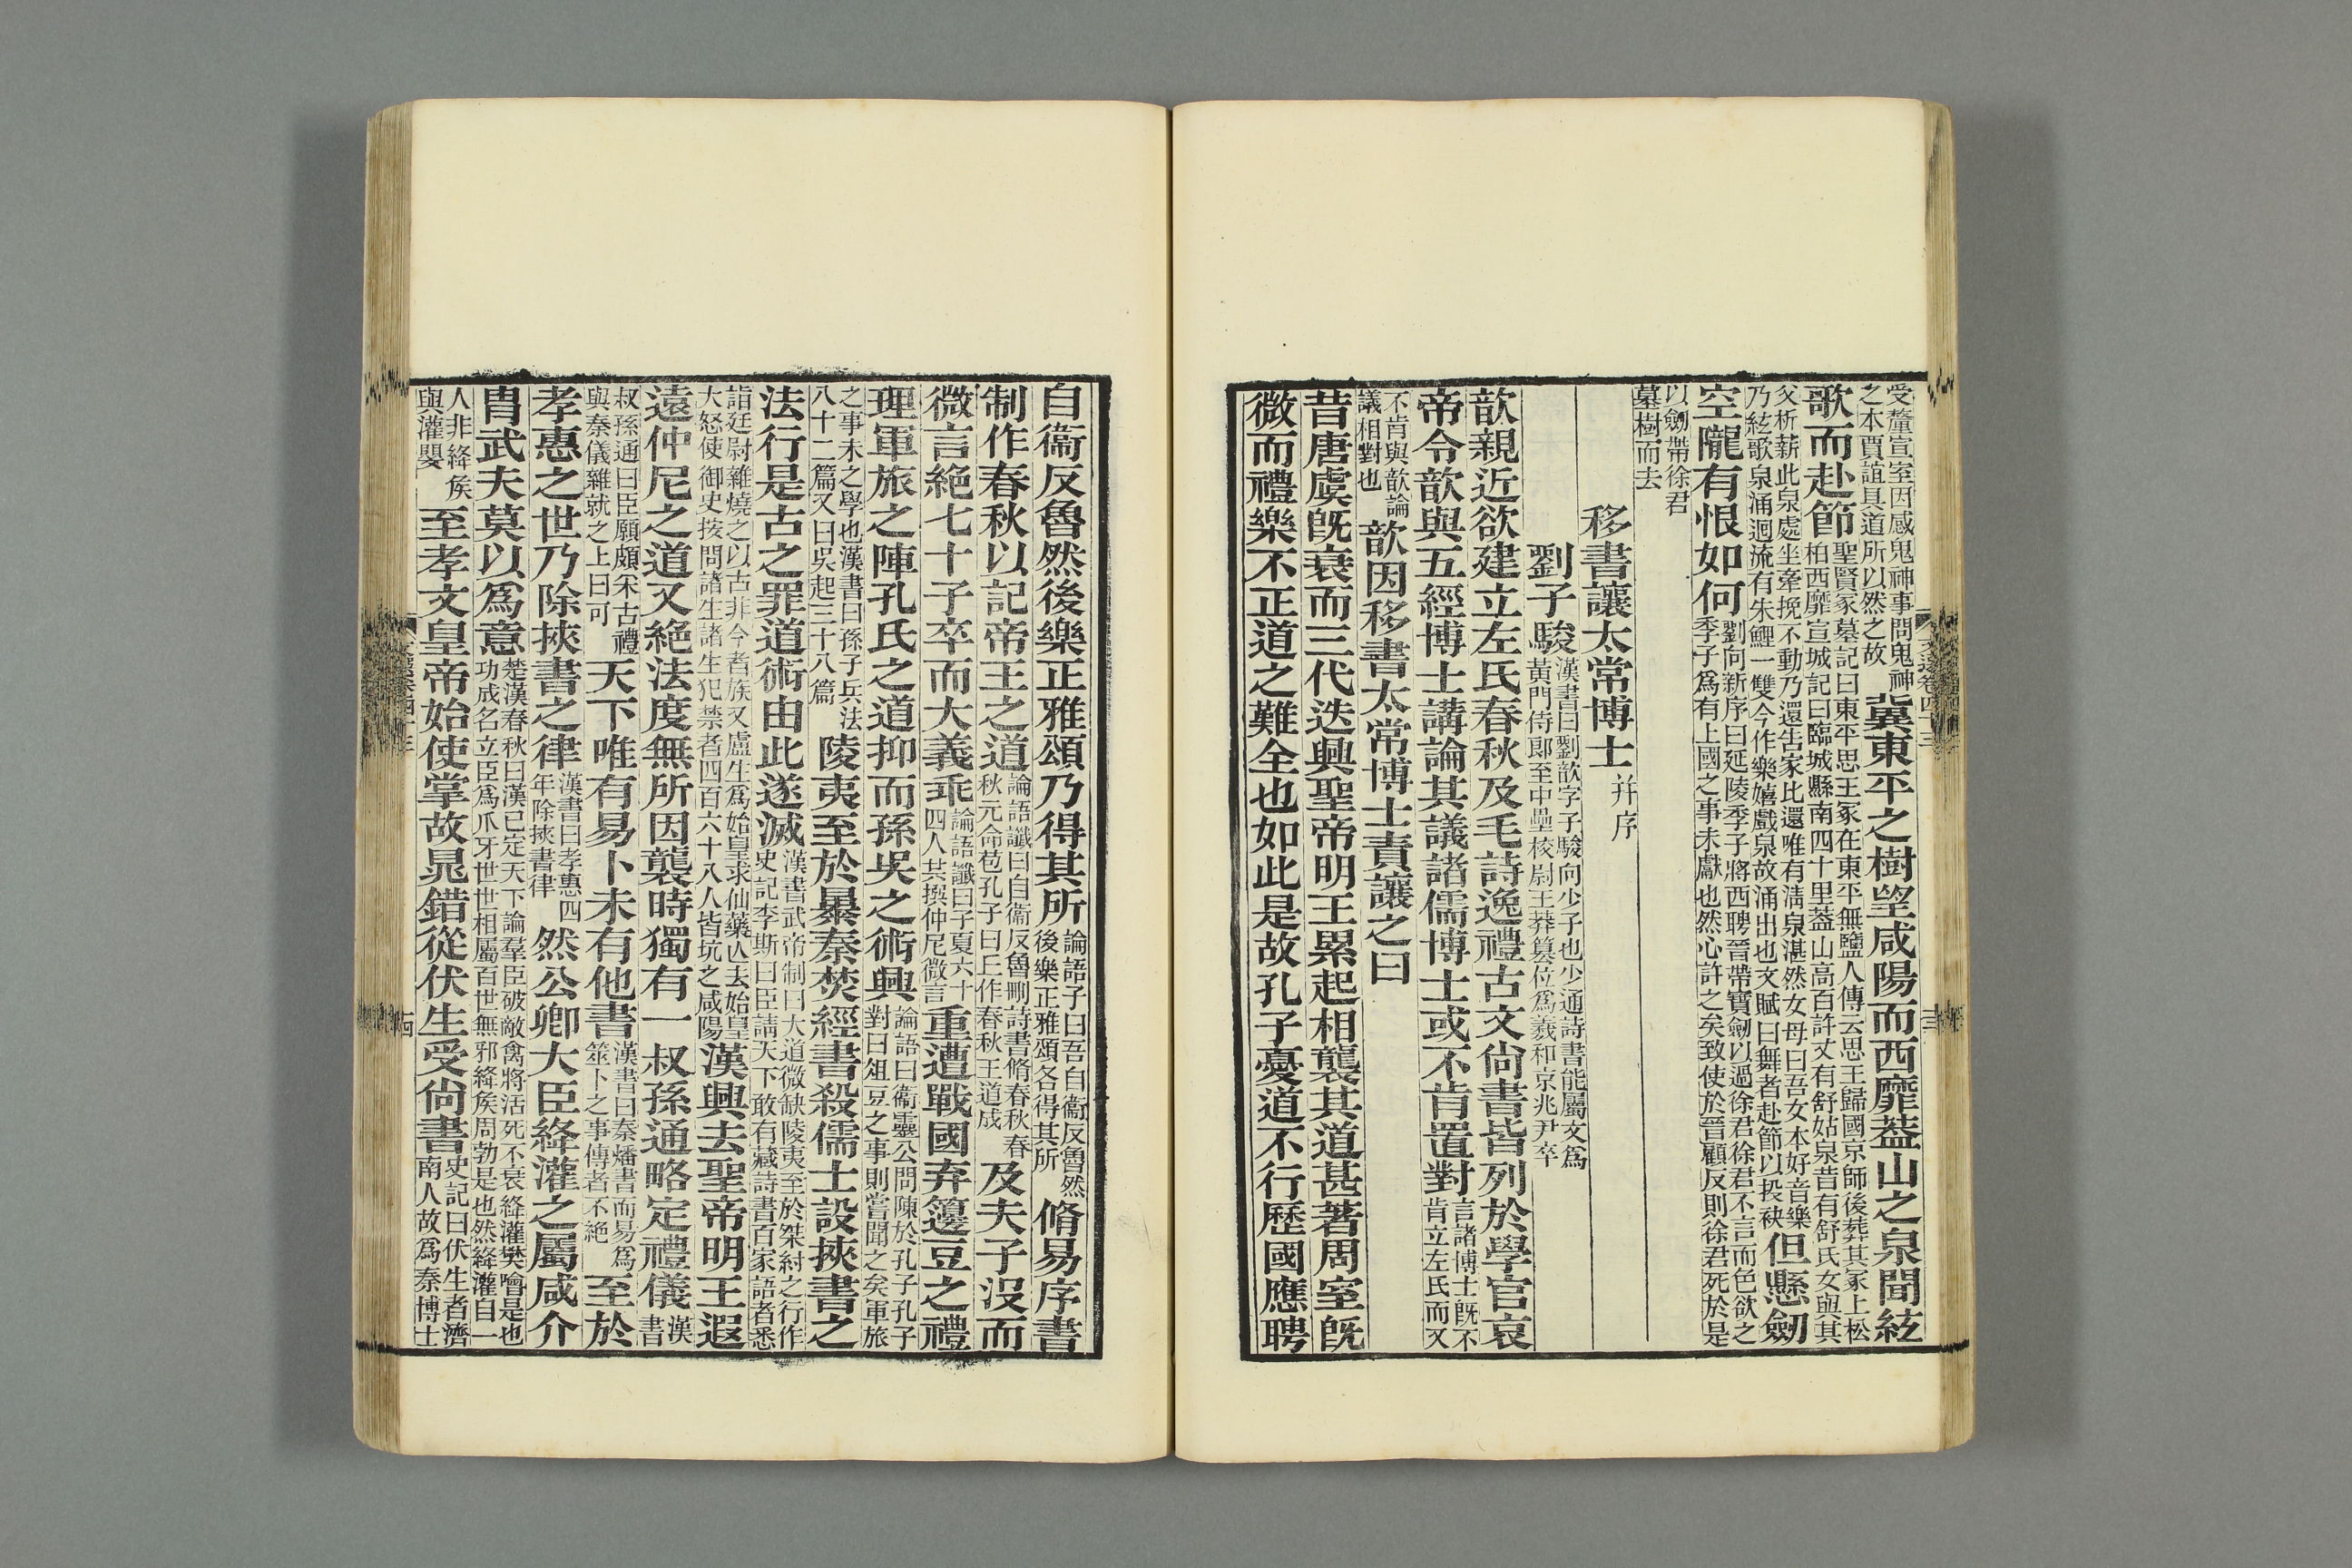 受釐宣室因感鬼神事問鬼神之本賈誼具道所以然之故冀東平之樹望咸陽而西靡蓋山之泉聞絃
歌而赴節聖賢冢墓記曰東平思王冢在東平無鹽人傳云思王歸國京師後葬其冢上松柏西靡宣城記曰臨城縣南四十里蓋山高百許丈有舒姑泉昔有舒氏女與其
父析薪此泉處坐牽挽不動乃還告家比還唯有清泉湛然女母曰吾女本好音樂乃絃歌泉涌迴流有朱鯉一雙今作樂嬉戲泉故涌出也文賦曰舞者赴節以投袂但懸劒
空隴有恨如何劉向新序曰延陵季子將西聘晉帶寶劒以過徐君徐君不言而色欲之季子爲有上國之事未獻也然心許之矣致使於晉顧反則徐君死於是
以劒帶徐君墓樹而去
移書讓太常博士并序
劉子駿漢書曰劉歆字子駿向少子也少通詩書能屬文爲黃門侍郞至中壘校尉王莽篡位爲羲和京兆尹卒
歆親近欲建立左氏春秋及毛詩逸禮古文尙書皆列於學官哀
帝令歆與五經博士講論其議諸儒博士或不肯置對言諸博士既不肯立左氏而又
不肯與歆論議相對也歆因移書太常博士責讓之曰
昔唐虞旣衰而三代迭興聖帝明王累起相襲其道甚著周室旣
微而禮樂不正道之難全也如此是故孔子憂道不行歷國應聘
自衞反魯然後樂正雅頌乃得其所論語子曰吾自衞反魯然後樂正雅頌各得其所脩易序書
制作春秋以記帝王之道論語讖曰自衞反魯刪詩書脩春秋春秋元命苞孔子曰丘作春秋王道成及夫子沒而
微言絕七十子卒而大義乖論語讖曰子夏六十四人共撰仲尼微言重遭戰國弃籩豆之禮
理軍旅之陣孔氏之道抑而孫吳之術興論語曰衞靈公問陳於孔子孔子對曰俎豆之事則嘗聞之矣軍旅
之事未之學也漢書曰孫子兵法八十二篇又曰吳起三十八篇陵夷至於暴秦焚經書殺儒士設挾書之
法行是古之罪道術由此遂滅漢書武帝制曰大道微缺陵夷至於桀紂之行作史記李斯曰臣請天下敢有藏詩書百家語者悉
詣廷尉雜燒之以古非今者族又盧生爲始皇求仙藥亾去始皇大怒使御史按問諸生諸生犯禁者四百六十八人皆坑之咸陽漢興去聖帝明王遐
遠仲尼之道又絕法度無所因襲時獨有一叔孫通略定禮儀漢書
叔孫通曰臣願頗采古禮與秦儀雜就之上曰可天下唯有易卜未有他書漢書曰秦燔書而易爲筮卜之事傳者不絕至於
孝惠之世乃除挾書之律漢書曰孝惠四年除挾書律然公卿大臣絳灌之屬咸介
胄武夫莫以爲意楚漢春秋曰漢已定天下論羣臣破敵禽將活死不衰絳灌樊噲是也功成名立臣爲爪牙世世相屬百世無邪絳侯周勃是也然絳灌自一
人非絳侯與灌嬰至孝文皇帝始使掌故晁錯從伏生受尙書史記曰伏生者濟南人故爲秦博士